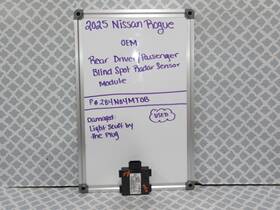 2025 Nissan Rogue
OEM
Rear Driver/Passenger
Blind Spot Radar Sensor
Module
P# 284N04MT0B
Damaged:
Light Scuff by
the Plug
USED